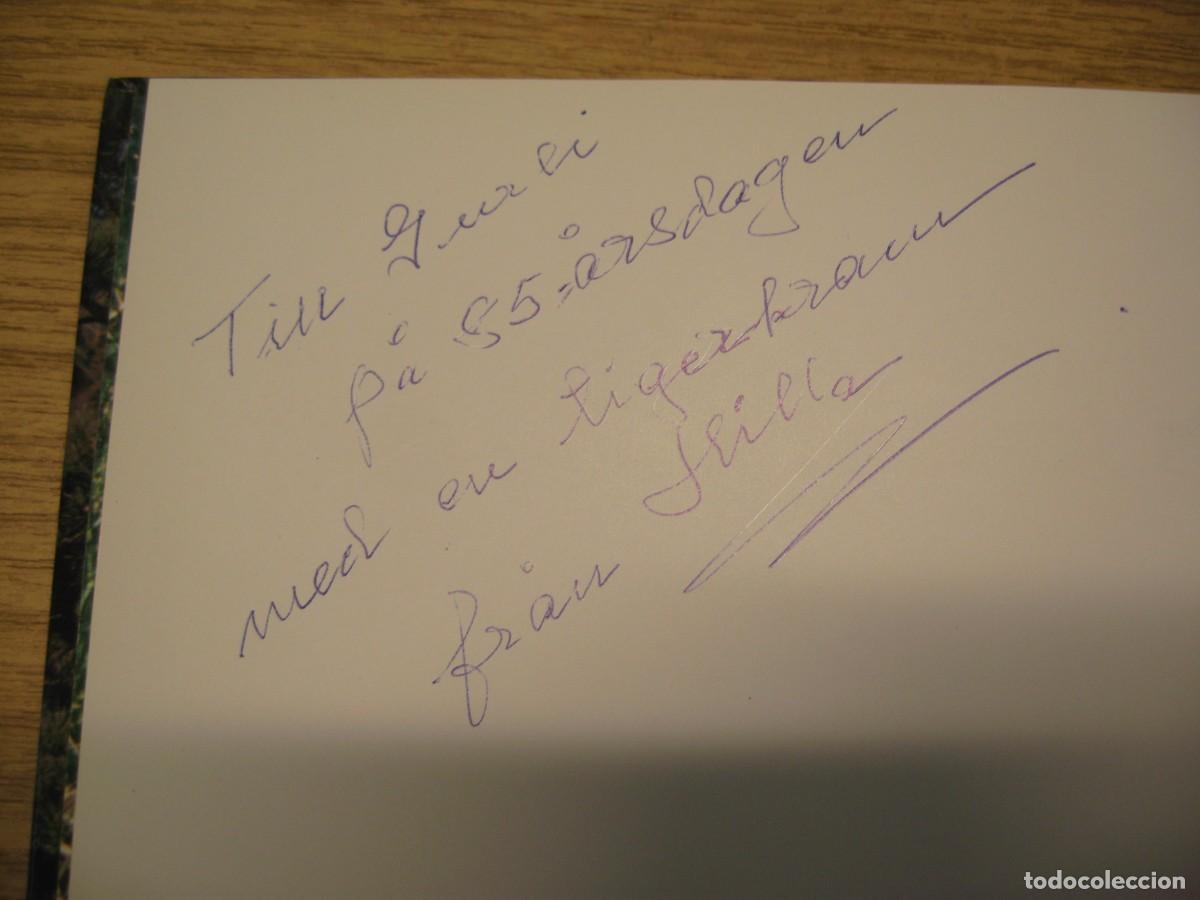 Till Gurli
på 85-årsdagen
med en tigerkram
från Scilla
todocoleccion